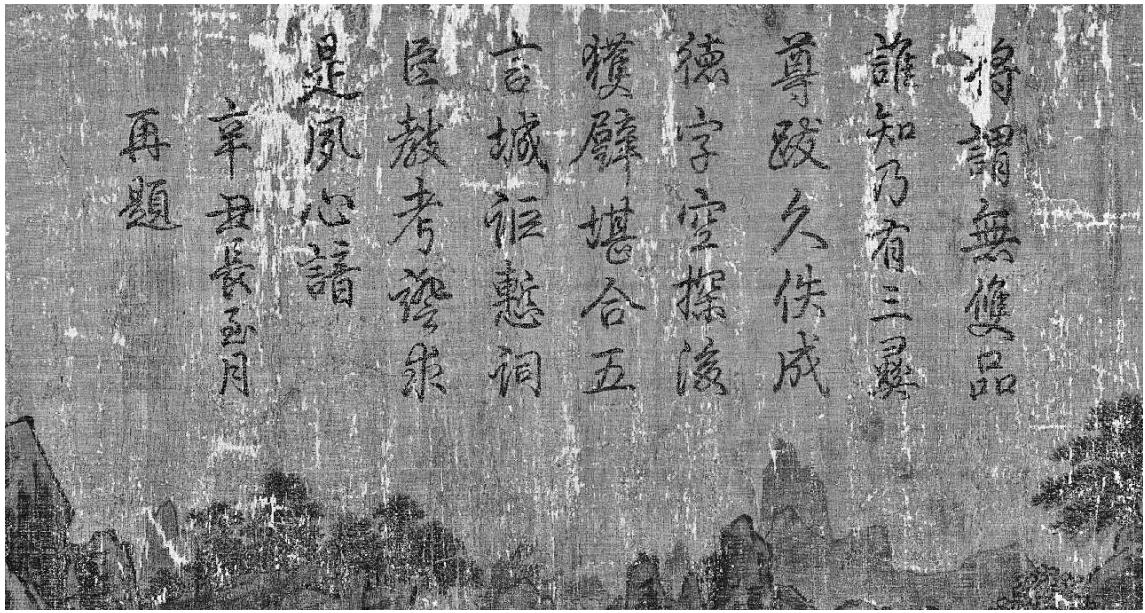 將謂無雙品
誰知乃有三彞
尊跋久佚成
德字空探後
獲璧堪合五
言城詎慙詞
臣教考證求
是夙心諳
辛丑長至月
再題